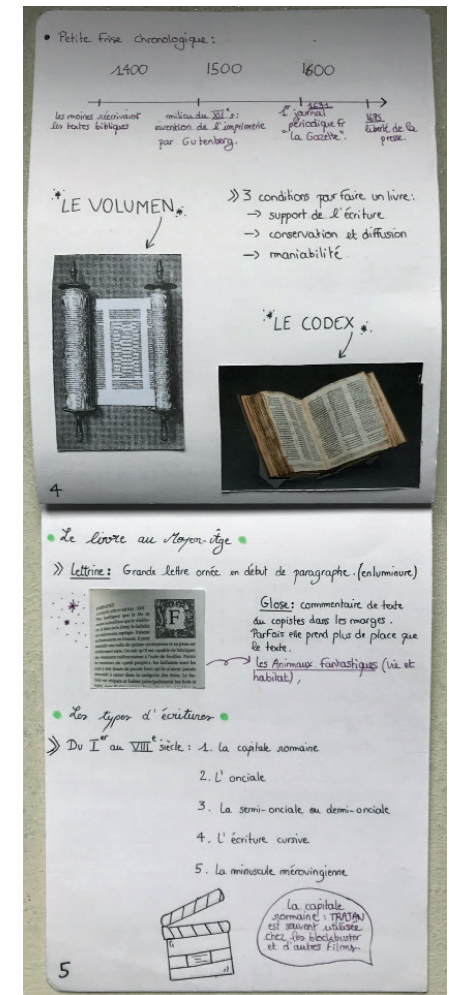 • Petite frise chronologique :
1400 1500 1600
les moines réécrivaient
les textes bibliques
milieu du XVe s :
invention de l'imprimerie
par Gutenberg.
1er journal
périodique fr
"La Gazette".
1631
liberté de la
presse.
LE VOLUMEN
» 3 conditions pour faire un livre :
→ support de l'écriture
→ conservation et diffusion
→ maniabilité
LE CODEX
4
• Le livre au Moyen-Âge •
» Lettrine : Grande lettre ornée en début de paragraphe. (enluminure)
F
Glose : commentaire de texte
du copistes dans les marges.
Parfois elle prend plus de place que
le texte.
→ Les Animaux fantastiques (vie et
habitat),
• Les types d'écritures •
» Du Ier au VIIIe siècle : 1. La capitale romaine
2. L'onciale
3. La semi-onciale ou demi-onciale
4. L'écriture cursive
5. La minuscule mérovingienne
La capitale
romaine : TRAJAN
est souvent utilisée
chez les blockbuster
et d'autres films.
5